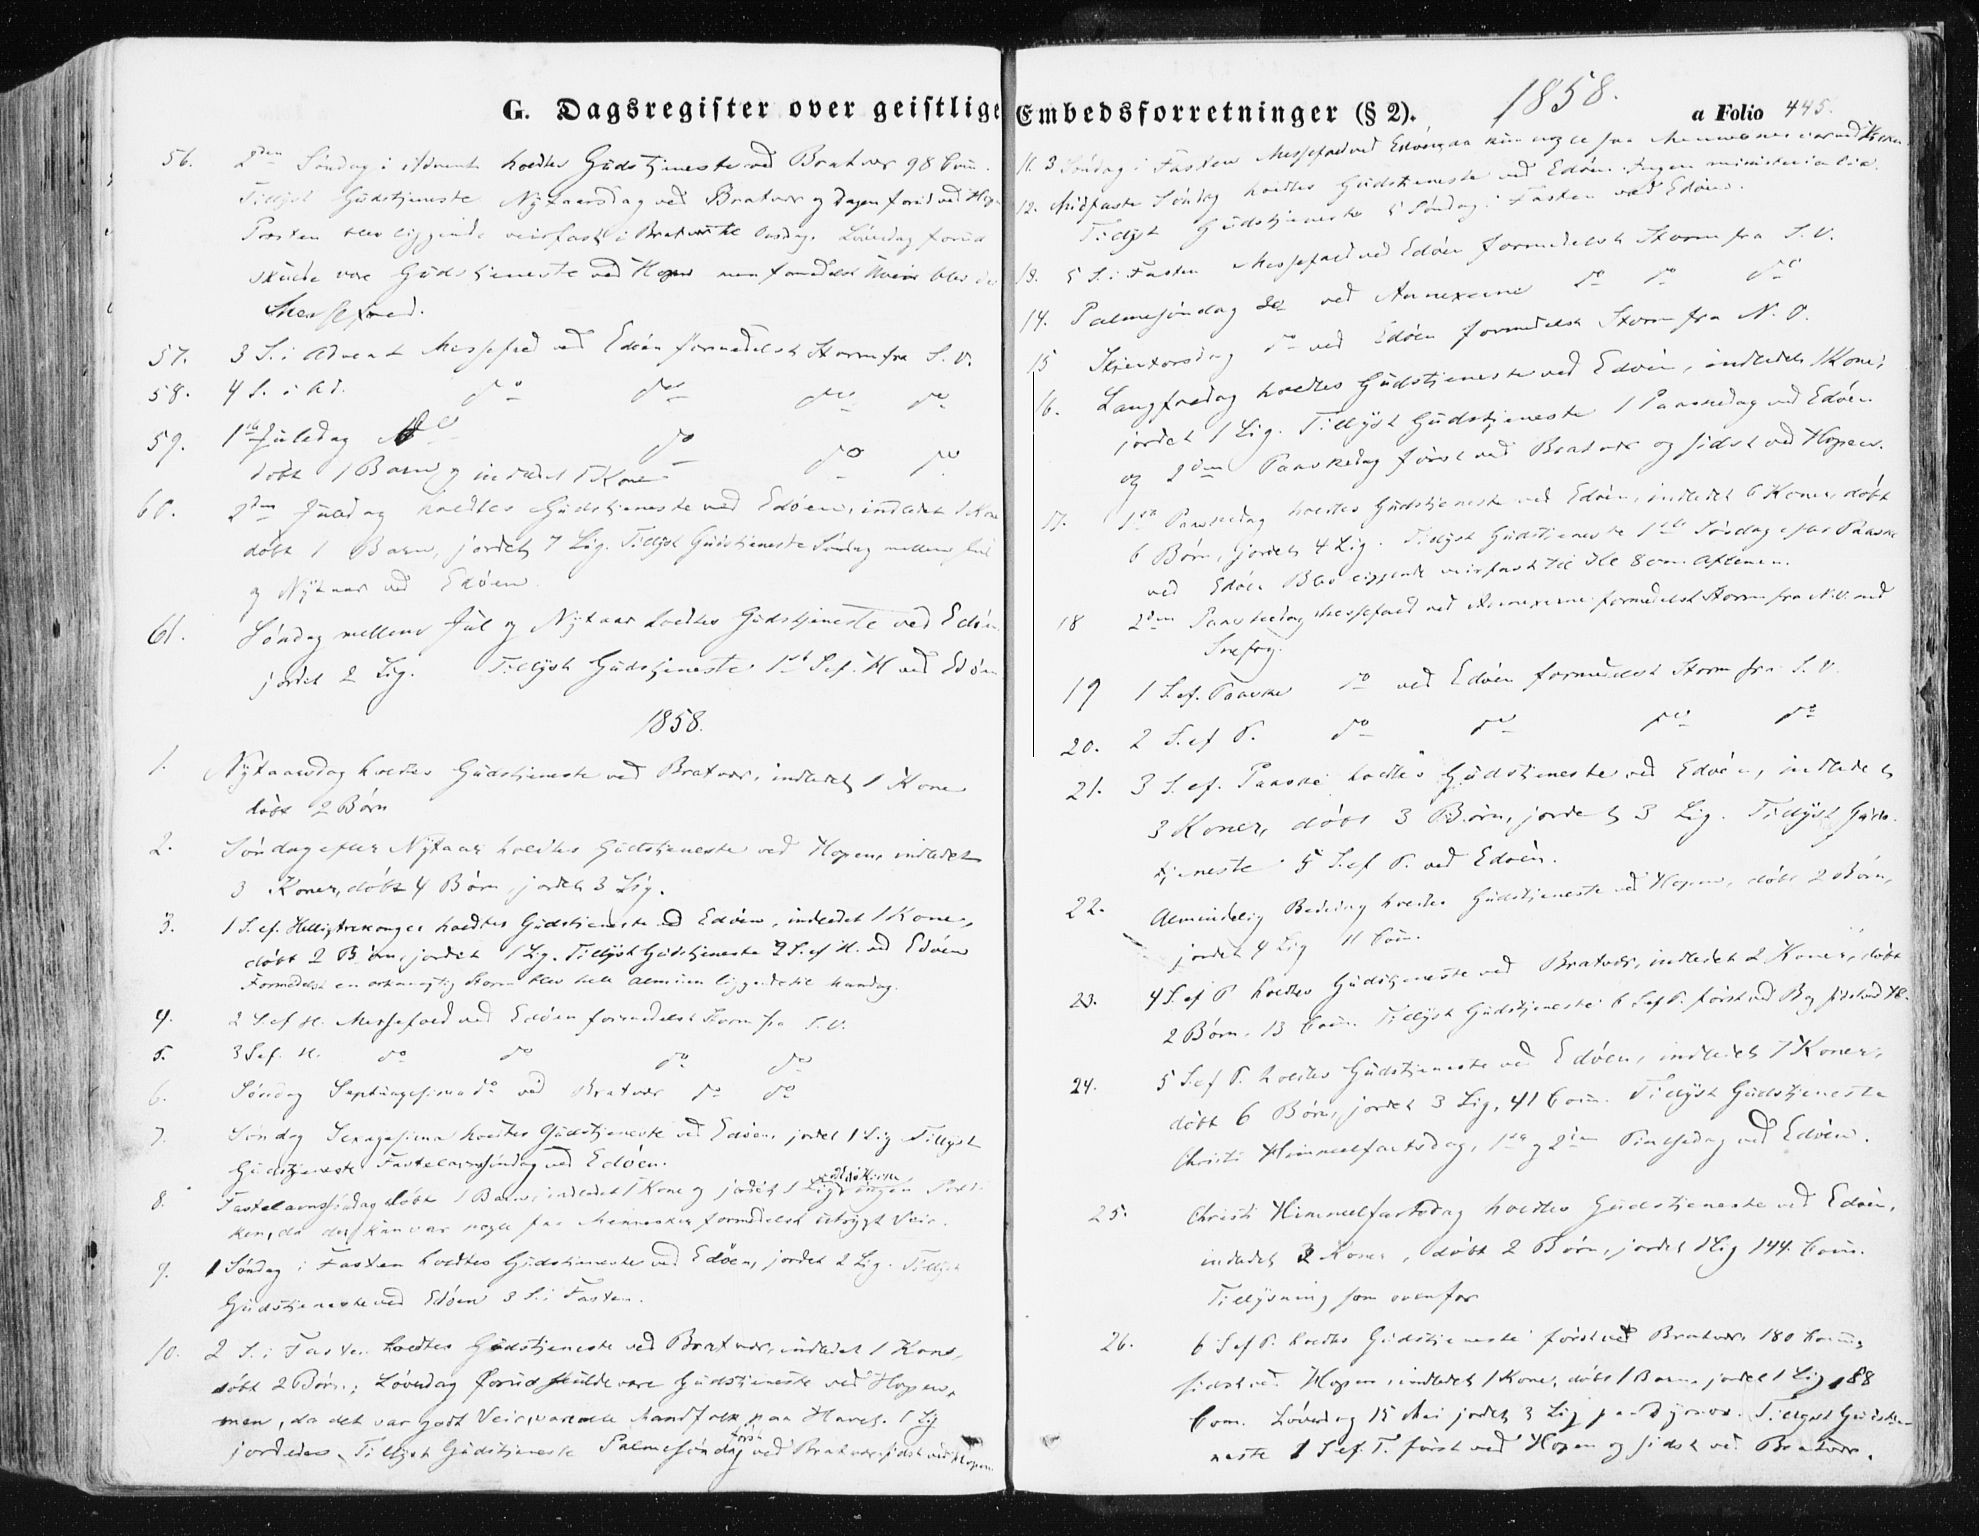 G. Dagsregister over geistlige
56. 2den Søndag i Advent holdtes Gudstjeneste ved Bratvær 98 Com.
Tillyst Gudstjeneste Nytaarsdag ved Bratvær og Dagen forud ved Hop
Præsten blev liggende veirfast i Bratvær til Onsdag. Løverdag forud
skulde være Gudstjeneste ved Hopen men formedelst blev de
Messefald.
57. 3 S. i Advent Messefald ved Edøen formedelst Storm fra S. V.
58. 4 S. i Ad. do do do do
59. 1ste Juledag do do do do
døbt 1 Barn og indledet 1 Kone
60. 2den Juledag holdtes Gudstjeneste ved Edøen, indledet 1 Kone
døbt 1 Barn, jordet 7 Lig. Tillyst Gudstjeneste Søndag mellem Jul
og Nytaar ved Edøen.
61. Søndag mellem Jul og Nytaar holdtes Gudstjeneste ved Edøen
jordet 2 Lig. Tillyst Gudstjeneste 1ste S. ef. H ved Edøen
1858.
1. Nytaarsdag holdtes Gudstjeneste ved Bratvær, indledet 1 Kone
døbt 2 Børn
2. Søndag efter Nytaar holdtes Gudstjeneste ved Hopen, indledet
3 Koner, døbt 4 Børn, jordet 3 Lig.
3. 1 S. ef. Helligtrekonger holdtes Gudstjeneste ved Edøen, indledet 1 Kone,
døbt 2 Børn, jordet 1 Lig. Tillyst Gudstjeneste 2 S. ef H. ved Edøen
Formedelst en orkanagtig Storm blev hele Almuen liggende til Mandag.
4. 2 S. ef H. Messefald ved Edøen formedelst Storm fra S. V.
5. 3 S. ef. H. do do do do
6. Søndag Septuagesima do ved Bratvær do do
7. Søndag Sexagesima holdtes Gudstjeneste ved Edøen, jordet 1 Lig. Tillyst
Gudstjeneste Fastelavnssøndag ved Edøen.
8. Fastelavnssøndag døbt 1 Barn, indledet 1 Kone og jordet 1 Lig, ingen Prædi-
ken, da der kun var nogle faa Mennesker formedelst utrygt Veir.
9. 1 Søndag i Fasten holdtes Gudstjeneste ved Edøen, jordet 2 Lig. Tillyst
Gudstjeneste ved Edøen 3 S. i Fasten.
10. 2 S. i Fasten holdtes Gudstjeneste ved Bratvær, indledet 1 Kone,
døbt 2 Børn; Løverdag forud skulde være Gudstjeneste ved Hopen,
men, da det var godt Veir, var alle Mandfolk paa Havet. 1 Lig
jordedes. Tillyst Gudstjeneste Palmesøndag først ved Bratvær, sidst ved Hopen
Embedsforretninger (§ 2). 1858. a Folio 445.
11. 3 Søndag i Fasten Messefald ved Edøen, da kun nogle faa Mennesker var ved Kirken.
12. Midfaste Søndag holdtes Gudstjeneste ved Edøen. Ingen ministerialia.
Tillyst Gudstjeneste 5 Søndag i Fasten ved Edøen.
13. 5 S. i Fasten Messefald ved Edøen formedelst Storm fra S. V.
14. Palmesøndag do ved Annexerne do do do
15 Skjertorsdag do ved Edøen formedelst Storm fra N. V.
16. Langfredag holdtes Gudstjeneste ved Edøen, indledet 1 Kone,
jordet 1 Lig. Tillyst Gudstjeneste 1 Paaskedag ved Edøen
og 2den Paaskedag først ved Bratvær og sidst ved Hopen.
17. 1ste Paaskedag holdtes Gudstjeneste ved Edøen, indledet 6 Koner, døbt
6 Børn, jordet 4 Lig. Tillyst Gudstjeneste 1ste Søndag efter Paaske
ved Edøen. Blev liggende veirfast til Kl. 8 om Aftenen.
18 2den Paaskedag Messefald ved Annexerne formedelst Storm fra N.V. med
Snefog.
19 1 S. ef. Paaske do ved Edøen formedelst Storm fra S. V.
20. 2 S. ef P. do do do do
21. 3 S. ef. Paaske holdtes Gudstjeneste ved Edøen, indledet
3 Koner, døbt 3 Børn, jordet 3 Lig. Tillyst Guds-
tjeneste 5 S. ef P. ved Edøen.
22. Almindelig Bededag holdtes Gudstjeneste ved Hopen, døbt 2 Børn,
jordet 4 Lig 11 Com.
23. 4 S. ef P holdtes Gudstjeneste ved Bratvær, indledet 2 Koner, døbt
2 Børn. 13 Com. Tillyst Gudstjeneste 6 S ef P. først ved B og sidst ved H.
24. 5 S. ef P. holdtes Gudstjeneste ved Edøen, indledet 7 Koner,
døbt 6 Børn, jordet 3 Lig, 41 Com. Tillyst Gudstjeneste
Christi Himmelfartsdag, 1ste og 2den Pintsedag ved Edøen.
25. Christi Himmelfartsdag holdtes Gudstjeneste ved Edøen,
indledet 3 Koner, døbt 2 Børn, jordet 1 Lig 144. Com.
Tillysning som ovenfor
26. 6 S ef P. holdtes Gudstjeneste først ved Bratvær 180 Com,
sidst ved Hopen, indledet 1 Kone, døbt 1 Barn, jordet 1 Lig, 88
Com. Løverdag 15 Mai jordet 3 Lig Tillyst Gudstje-
neste 1 S. ef. T. først ved Hopen og sidst ved Bratvær.